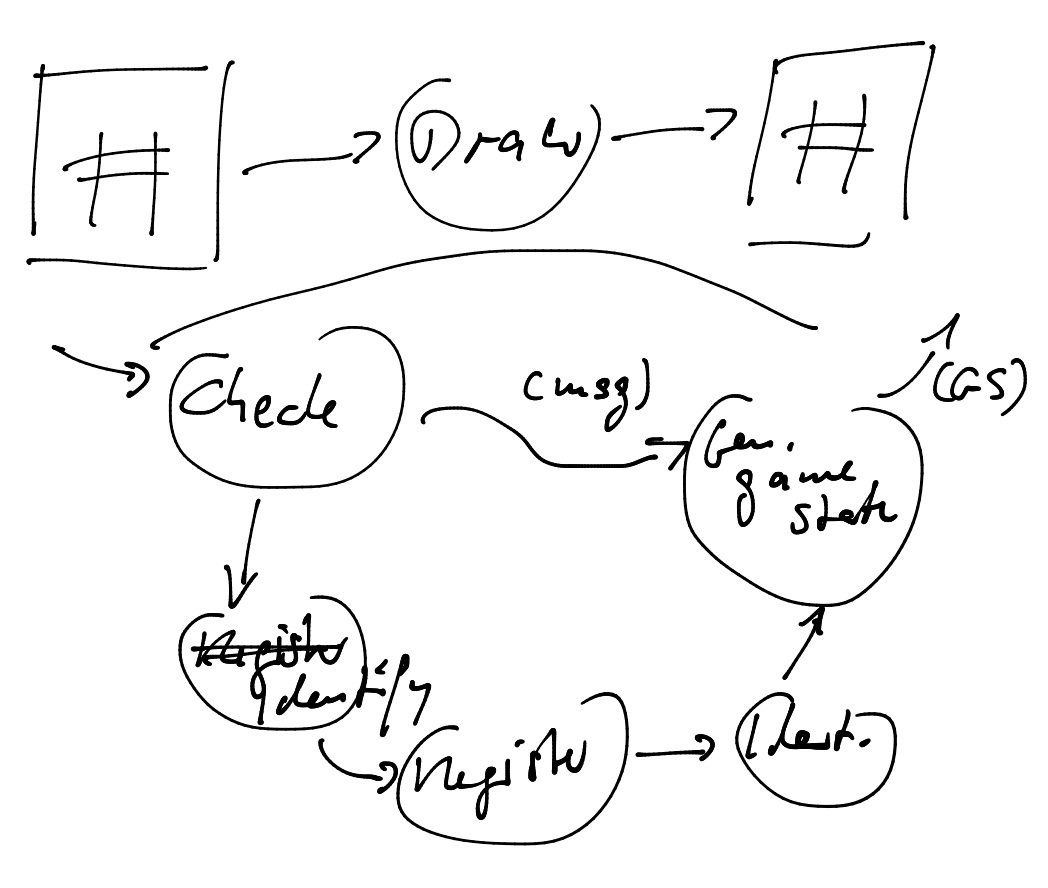 Draw
Check
(msg)
(GS)
Gen.
game
state
Register
Identify
Register
Ident.